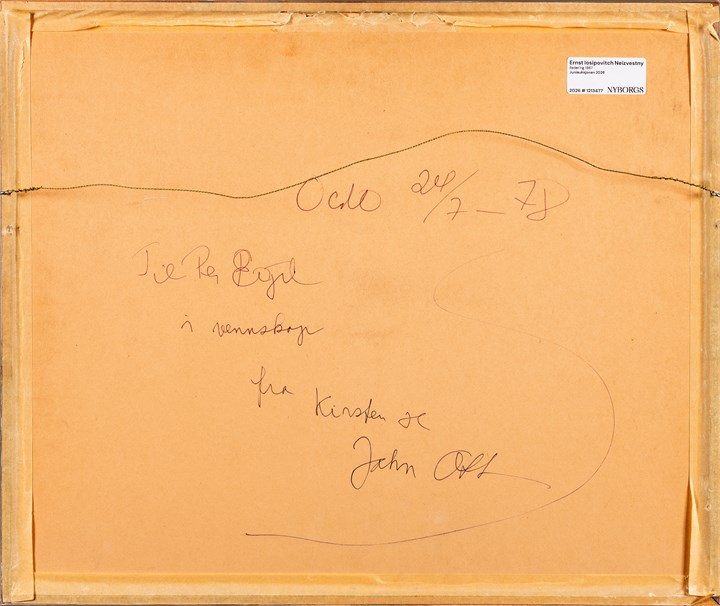 Ernst Iosipovitch Neizvestny
Radering 1967
Juniauksjonen 2036
2036 # 1213477 NYBORGS
Oslo 24/7 – 78
Til Per
i vennskap
fra Kirsten
John